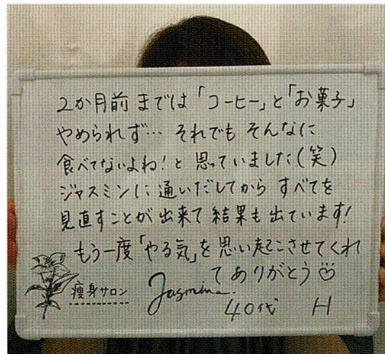 2か月前までは「コーヒー」と「お菓子」
やめられず… それでも そんなに
食べてないよね!と 思っていました(笑)
ジャスミンに 通いだしてから すべてを
見直すことが出来て 結果も出ています!
もう一度「やる気」を思い起こさせてくれ
てありがとう♡
痩身サロン Jasmine
40代 H